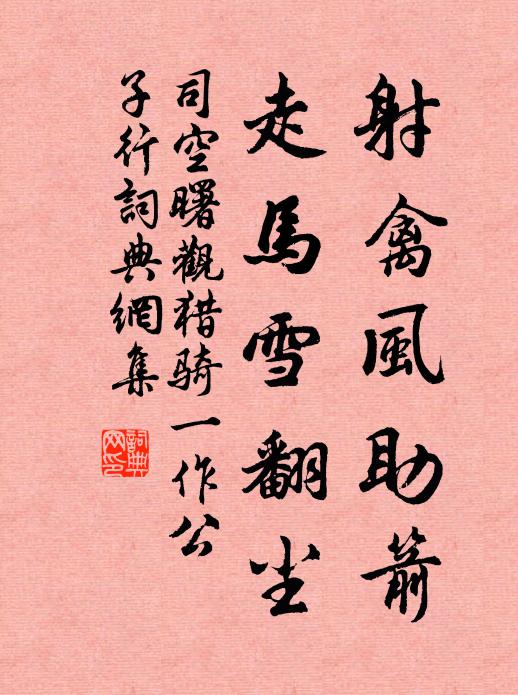 射禽風助箭
走馬雪翻尘
司空曙觀猎骑一作公
子行詞典網集
詞典
网印